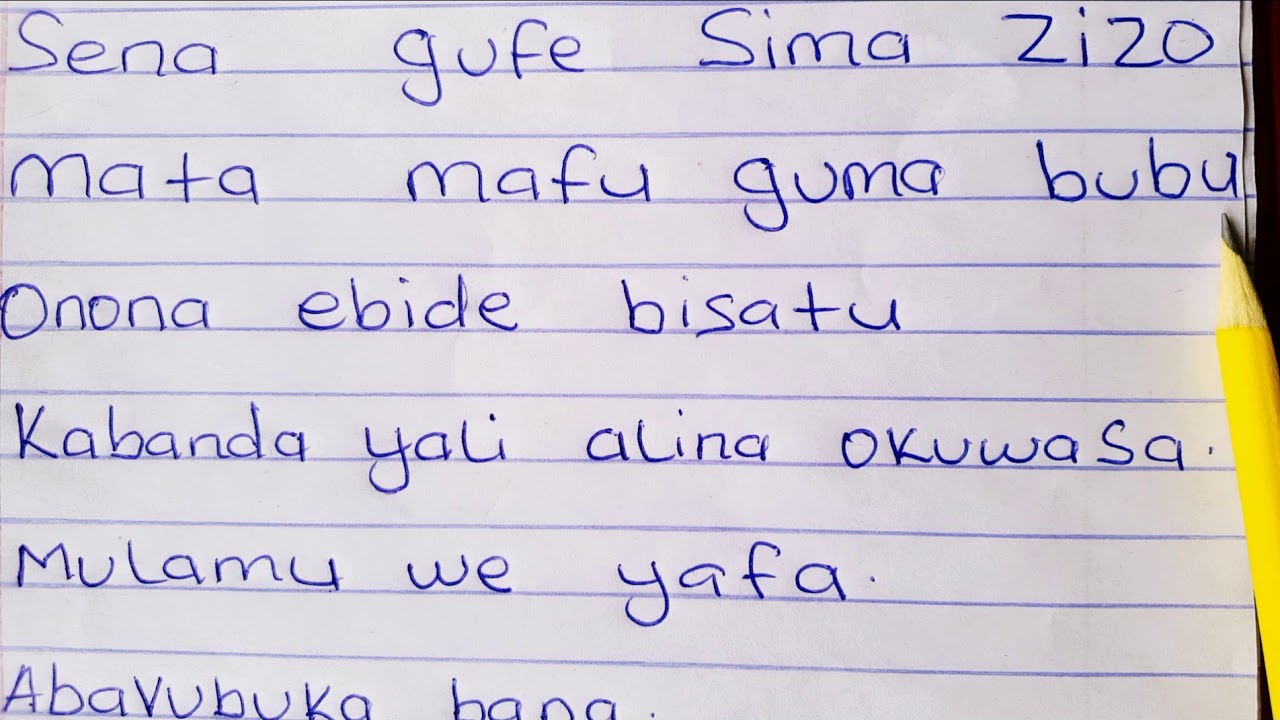 Sena gufe Sima Zizo
Mata mafu guma bubu
Onona ebide bisatu
Kabanda yali alina okuwasa.
Mulamu we yafa.
Abavubuka bana.